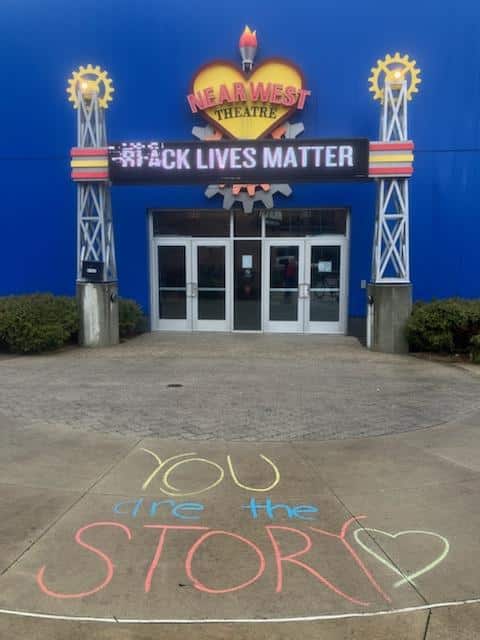 NEAR WEST
THEATRE
BLACK LIVES MATTER
YOU
are the
STORY